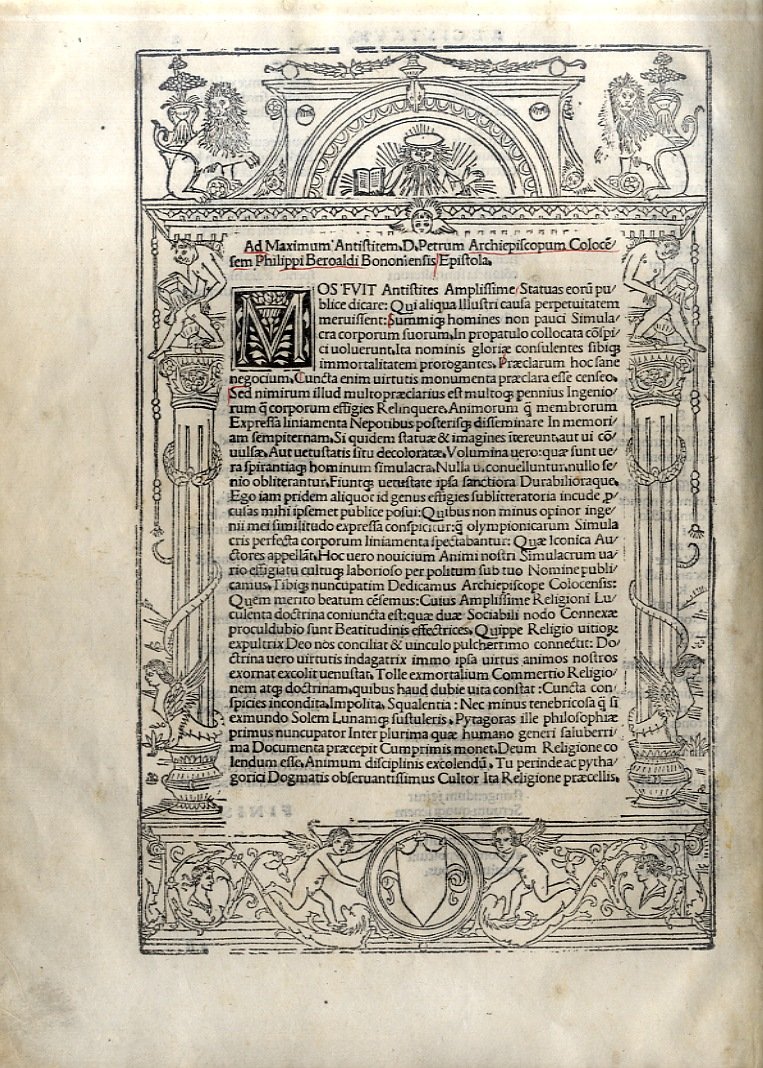 Ad Maximum Antistitem. D. Petrum Archiepiscopum Colocẽ/
sem Philippi Beroaldi Bononiensis Epistola.
MOS FVIT Antistites Amplissime Statuas eorũ pu/
blice dicare: Qui aliqua Illustri causa perpetuitatem
meruissent: Summiq; homines non pauci Simula
cra corporum suorum, In propatulo collocata cõspi/
ci uoluerunt, Ita nominis gloriæ consulentes sibiq;
immortalitatem prorogantes. Præclarum hoc sane
negocium, Cuncta enim uirtutis monumenta præclara esse censeo.
Sed nimirum illud multo præclarius est multoq; pennius Ingenio/
rum q̃ corporum effigies Relinquere, Animorum q̃ membrorum
Expressa liniamenta Nepotibus posterisq; disseminare In memori/
am sempiternam, Si quidem statuæ & imagines itereunt, aut ui cõ/
uulsæ, Aut uetustatis situ decoloratæ. Volumina uero: quæ sunt ue/
ra spirantiaq; hominum simulacra, Nulla ui conuelluntur, nullo se/
nio obliterantur, Fiuntq; uetustate ipsa sanctiora Durabilioraque.
Ego iam pridem aliquot id genus effigies sublitteratoria incude ꝑ/
cusas mihi ipsemet publice posui: Quibus non minus opinor inge/
nii mei similitudo expressa conspicitur: q̃ olympionicarum Simula
cris perfecta corporum liniamenta spectabantur: Quæ Iconica Au/
ctores appellãt. Hoc uero nouicium Animi nostri Simulacrum ua/
rio effigiatu cultuq; laborioso per politum sub tuo Nomine publi/
camus, Tibiq; nuncupatim Dedicamus Archiepiscope Colocensis:
Quem merito beatum cẽsemus: Cuius Amplissime Religioni Lu/
culenta doctrina coniuncta est: quæ duæ Sociabili nodo Connexæ
proculdubio sunt Beatitudinis effectrices. Quippe Religio uitioꝝ
expultrix Deo nos conciliat & uinculo pulcherrimo connectit: Do/
ctrina uero uirtutis indagatrix immo ipsa uirtus animos nostros
exornat excolit uenustat. Tolle exmortalium Commertio Religio/
nem atq; doctrinam, quibus haud dubie uita constat: Cuncta con/
spicies incondita, Impolita, Squalentia: Nec minus tenebricosa q̃ si
exmundo Solem Lunamq; sustuleris. Pytagoras ille philosophiæ
primus nuncupator Inter plurima quæ humano generi saluberri/
ma Documenta præcepit Cumprimis monet, Deum Religione co/
lendum esse, Animum disciplinis excolendũ. Tu perinde ac pytha/
gorici Dogmatis obseruantissimus Cultor Ita Religione præcellis,